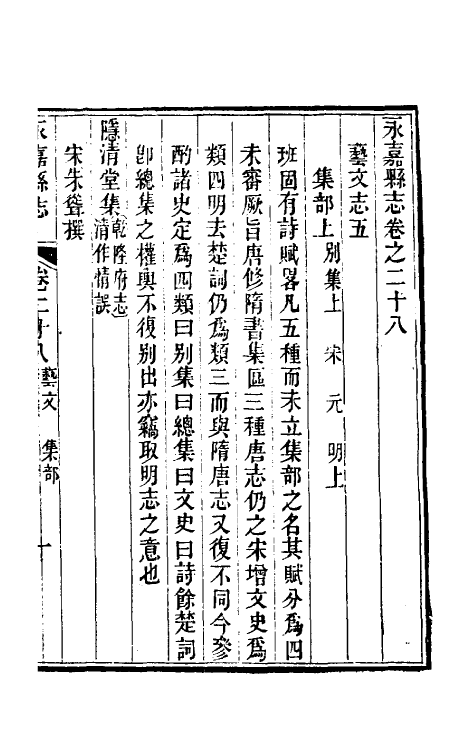 永嘉縣志卷之二十八
藝文志五
集部上 別集上 宋 元 明上
班固有詩賦畧凡五種而未立集部之名其賦分爲四
未審厥旨唐修隋書集區三種唐志仍之宋增文史爲
類四明去楚詞仍爲類三而與隋唐志又復不同今參
酌諸史定爲四類曰別集曰總集曰文史曰詩餘楚詞
卽總集之權輿不復別出亦竊取明志之意也
隱清堂集乾隆府志清作情誤
宋朱聳撰
永嘉縣志 卷二十八 藝文 集部 一